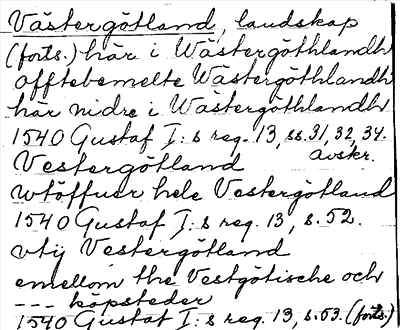 Västergötland, landskap
(forts.) här i Wästergöthlandh
offtebemelte Wästergöthlandh
här nidre i Wästergöthlandh
1540 Gustaf I:s reg. 13, ss. 31, 32, 34.
avskr.
Vestergötland
wtöffuer hele Vestergötland
1540 Gustaf I:s reg. 13, s. 52.
vtij Vestergötland
emellom the Vestgötische och
--- köpsteder
1540 Gustaf I:s reg. 13, s. 53. (forts.)